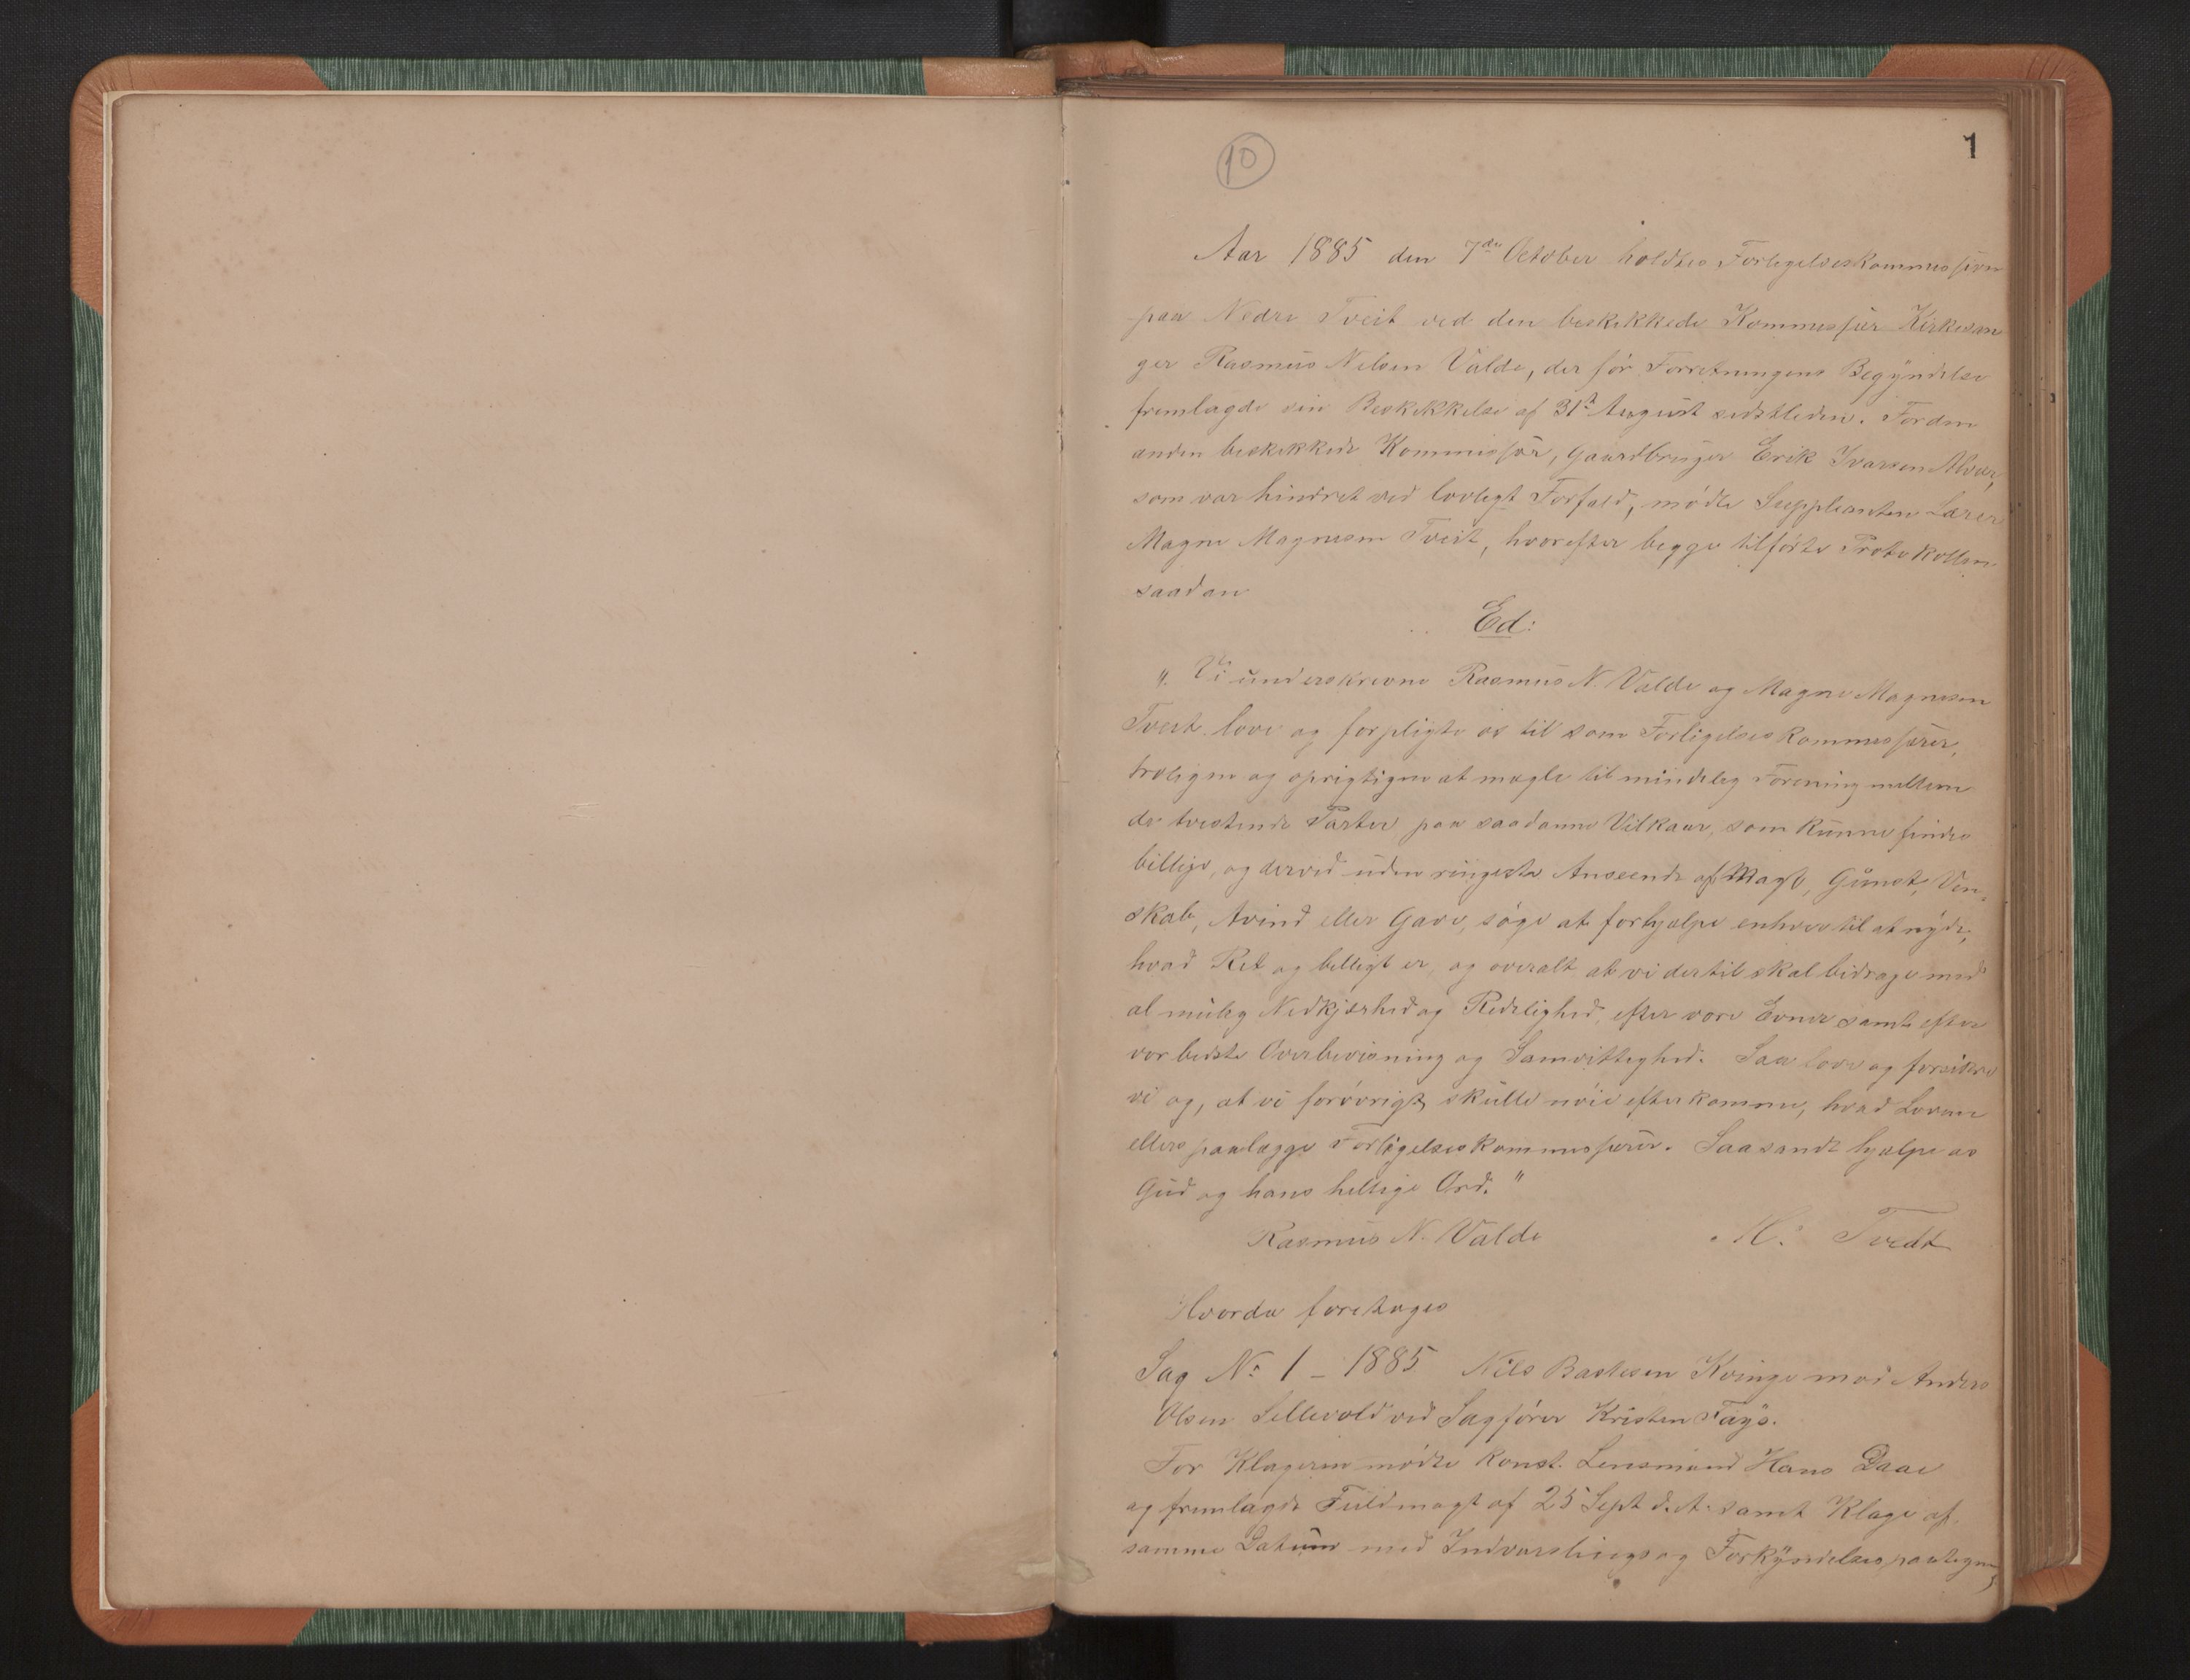 10
1
Aar 1885 den 7de October holdtes Forligelseskommission
paa Nedre Tveit ved den beskikkede Kommissær Kirkesan
ger Rasmus Nelsen Valde, der før Forretningens Begyndelse
fremlagde sin Beskikkelse af 31te August sidstleden. For den
anden beskikkede Kommissær, Gaardbruger Erik Ivarsen Alver,
som var hindret ved lovligt Forfald, mødte Suppleanten Lærer
Magne Magnesen Tveit, hvorefter begge tilførte Protokollen
saadan
Ed:
"Vi underskrevne Rasmus N. Valde og Magne Magnesen
Tveit love og forpligte os til som Forligelseskommissærer,
troligen og oprigtigen at mægle til mindelig Forening mellem
de tvistende Parter paa saadanne Vilkaar, som kunne findes
billige, og derved uden ringeste Anseende af Magt, Gunst, Ven-
skab, Avind eller Gave, søge at forhjælpe enhver til at nyde,
hvad Ret og billigt er, og overalt at vi dertil skal bidrage med
al mulig Nidkjærhed og Redelighed, efter vore Evner samt efter
vor bedste Overbevisning og Samvittighed. Saa love og forsikre
vi og, at vi forøvrigt skulle nøie efterkomme, hvad Loven
ellers paalægge Forligelseskommissærer. Saasandt hjælpe os
Gud og hans hellige Ord."
Rasmus N. Valde M: Tvedt
Hvorda foretages
Sag No: 1 – 1885 Nils Bastesen Kvinge mod Anders
Olsen Sellevold ved Sagfører Kristen Fayе.
For Klageren mødte konst. Lensmand Hans Daae
og fremlagde Fuldmagt af 25 Sept d. A. samt Klage af
samme Datum med Indvarslings og Forkyndelsespaategning